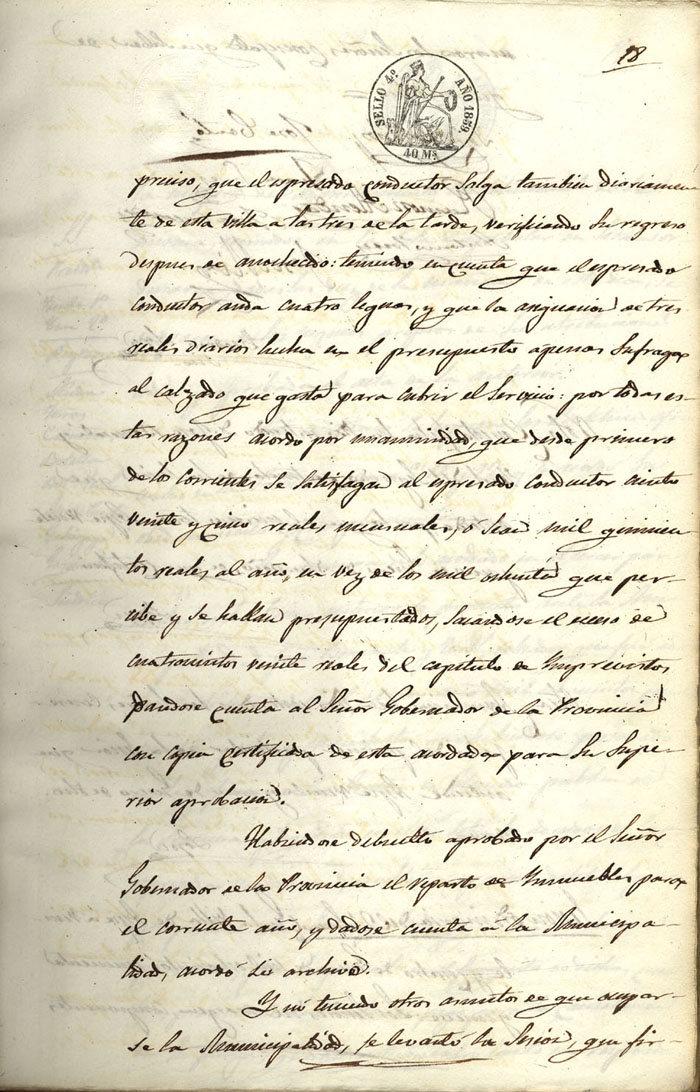 18
SELLO 4º AÑO 1859.
40 Ms.
preciso, que el espresado conductor salga tambien diariamen-
te de esta villa a las tres de la tarde, verificando su regreso
despues de anochecido: teniendo en cuenta que el espresado
conductor anda cuatro leguas, y que la asignacion de tres
reales diarios hecha en el presupuesto apenas sufraga
al calzado que gasta para cubrir el servicio: por todas es-
tas razones acordo por unanimidad, que desde primero
de los corrientes se satisfagan al espresado conductor ciento
veinte y cinco reales mensuales, ó sean mil quinien-
tos reales al año, en vez de los mil ochenta que per-
cibe y se hallan presupuestados, sacandose el exceso de
cuatrocientos veinte reales del capitulo de Imprevistos
dandose cuenta al Señor Gobernador de la Provincia
con copia certificada de esta acordada para su supe-
rior aprobacion.
Habiendose debuelto aprobado por el Señor
Gobernador de la Provincia el reparto de Inmuebles para
el corriente año, y dadose cuenta a la Municipa-
lidad, acordó se archive.
Y no teniendo otros asuntos de que ocupar-
se la Municipalidad, se levantó la sesion, que fir-